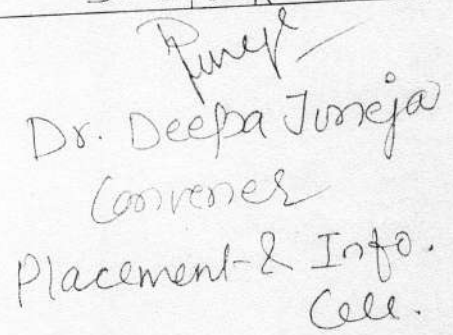 Dr. Deepa Juneja
Convener
Placement & Info.
Cell.